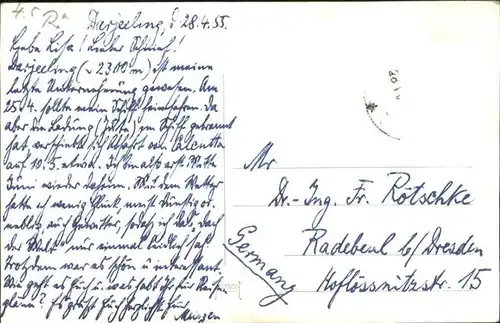 4.5 Ra
Darjeeling, d 28.4.55.
Liebe Lisa! Lieber Schnief!
Darjeeling (~2300 m) ist meine
letzte Unternehmung gewesen. Am
25.4. sollte mein Schiff heimfahren. Da
aber die Ladung (Jute) im Schiff gebrannt
hat verschiebt sich Abfahrt von Calcutta
auf 10.5. etwa. Ich bin also erst Mitte
Juni wieder daheim. Mit dem Wetter
hatte ich wenig Glück, meist dunstig od.
neblig, auch Gewitter, sodass ich das Dach
der Welt nur einmal sah
Trotzdem war es schön u. interessant
Wie geht es Euch u. was habt Ihr für Reise
pläne? Es grüßt Euch herzlichst Euer
An
Dr.-Ing. Fr. Rötschke
Radebeul b/Dresden
Hoflössnitzstr. 15
Germany